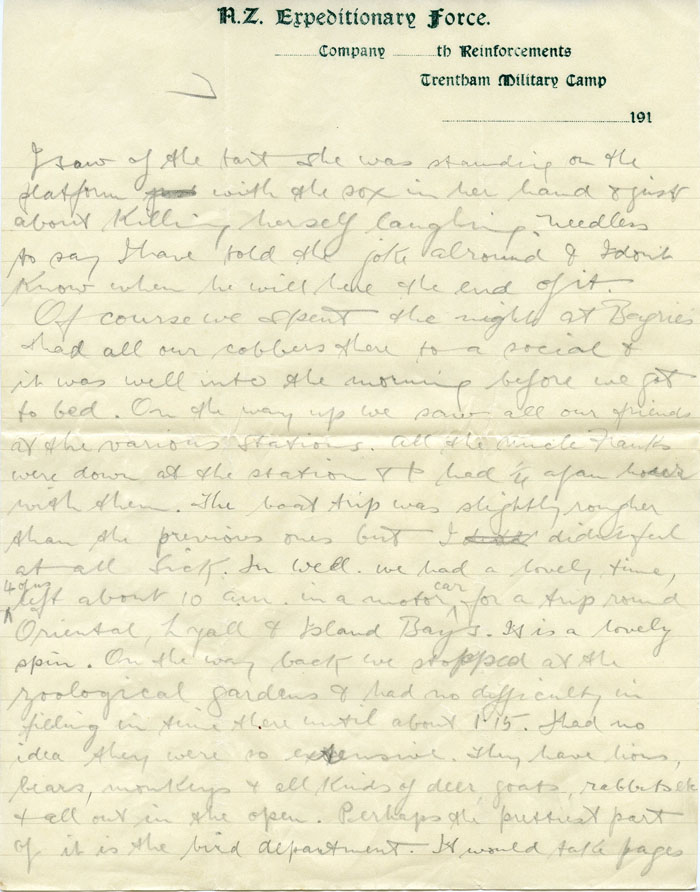 N.Z. Expeditionary Force.
Company th Reinforcements
Trentham Military Camp
191
I saw of the tart she was standing on the
platform with the sox in her hand & just
about killing herself laughing. Needless
to say I have told the joke alround & I don't
know when he will here the end of it.
Of course we spent the night at
had all our cobbers there to a social &
it was well into the morning before we got
to bed. On the way up we saw all our friends
at the various stations. All the uncle Franks
were down at the station & had ¼ of an hour
with them. The boat trip was slightly rougher
than the previous ones but I didn't feel
at all sick. In Well. we had a lovely time,
4 of us
left about 10 am. in a motor car for a trip round
Oriental, Lyall & Island Bay's. It is a lovely
spin. On the way back we stopped at the
zoological gardens & had no difficulty in
filling in time there until about 1.15. I had no
idea they were so extensive. They have lions,
bears, monkeys & all kinds of deer, goats, rabbits etc
& all out in the open. Perhaps the prettiest part
of it is the bird department. It would take pages